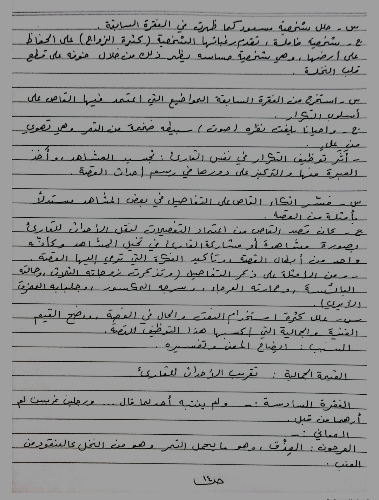 س - حلل شخصية مسعود كما ظهرت في الفقرة السابقة.
ج - شخصية فاعلة، تقدم رغباتها الشخصية (كثرة الزواج) على الحفاظ
على أرضها، وهي شخصية حساسة يظهر ذلك من خلال خوفه على قطع
قلب النخلة.
س - استخرج من الفقرة السابقة المواضيع التي اعتمد فيها القاص على
أسلوب التكرار.
ج - وأحيانا يلفت نظره (صوت) سبيطه ضخمة من التمر وهي تهوي
من علٍ.
- أثر توظيف التكرار في نفس القارئ: تجسيد المشاهد، وأخذ
العبرة منها والتركيز على دورها في رسم أحداث القصة.
س - فسّر اتكاء القاص على التفاصيل في بعض المشاهد مستدلاً
بأمثلة من القصة.
ج - كان قصد القاص من اعتماد التفصيلات لنقل الأحداث للقارئ
بصورة مشاهدة أو مشاركة القارئ في تخيل المشاهد وكأنه
واحد من أبطال القصة، وتأكيد الفكرة التي ترمي إليها القصة.
- ومن الأمثلة على ذكر التفاصيل (وتذكرت زوجاته الثلاث وحالته
البائسة، وحمارته العرجاء، وسرجه المكسور، وجلبابه الممزق
الأيدي)
س - علل كثرة استخدام النعت والحال في القصة، ووضح القيم
الفنية والجمالية التي أكسبها هذا التوظيف للقصة.
السبب: إيضاح المعنى وتفسيره.
القيمة الجمالية: تقريب الأحداث للقارئ
الفقرة السادسة: - ولم ينتبه أحد لما قال... ورجلين غريبين لم
أرهما من قبل.
المعاني: -
العرجون: العِذق، وهو ما يحمل التمر وهو من النخل كالعنقود من
العنب.
ص١٤